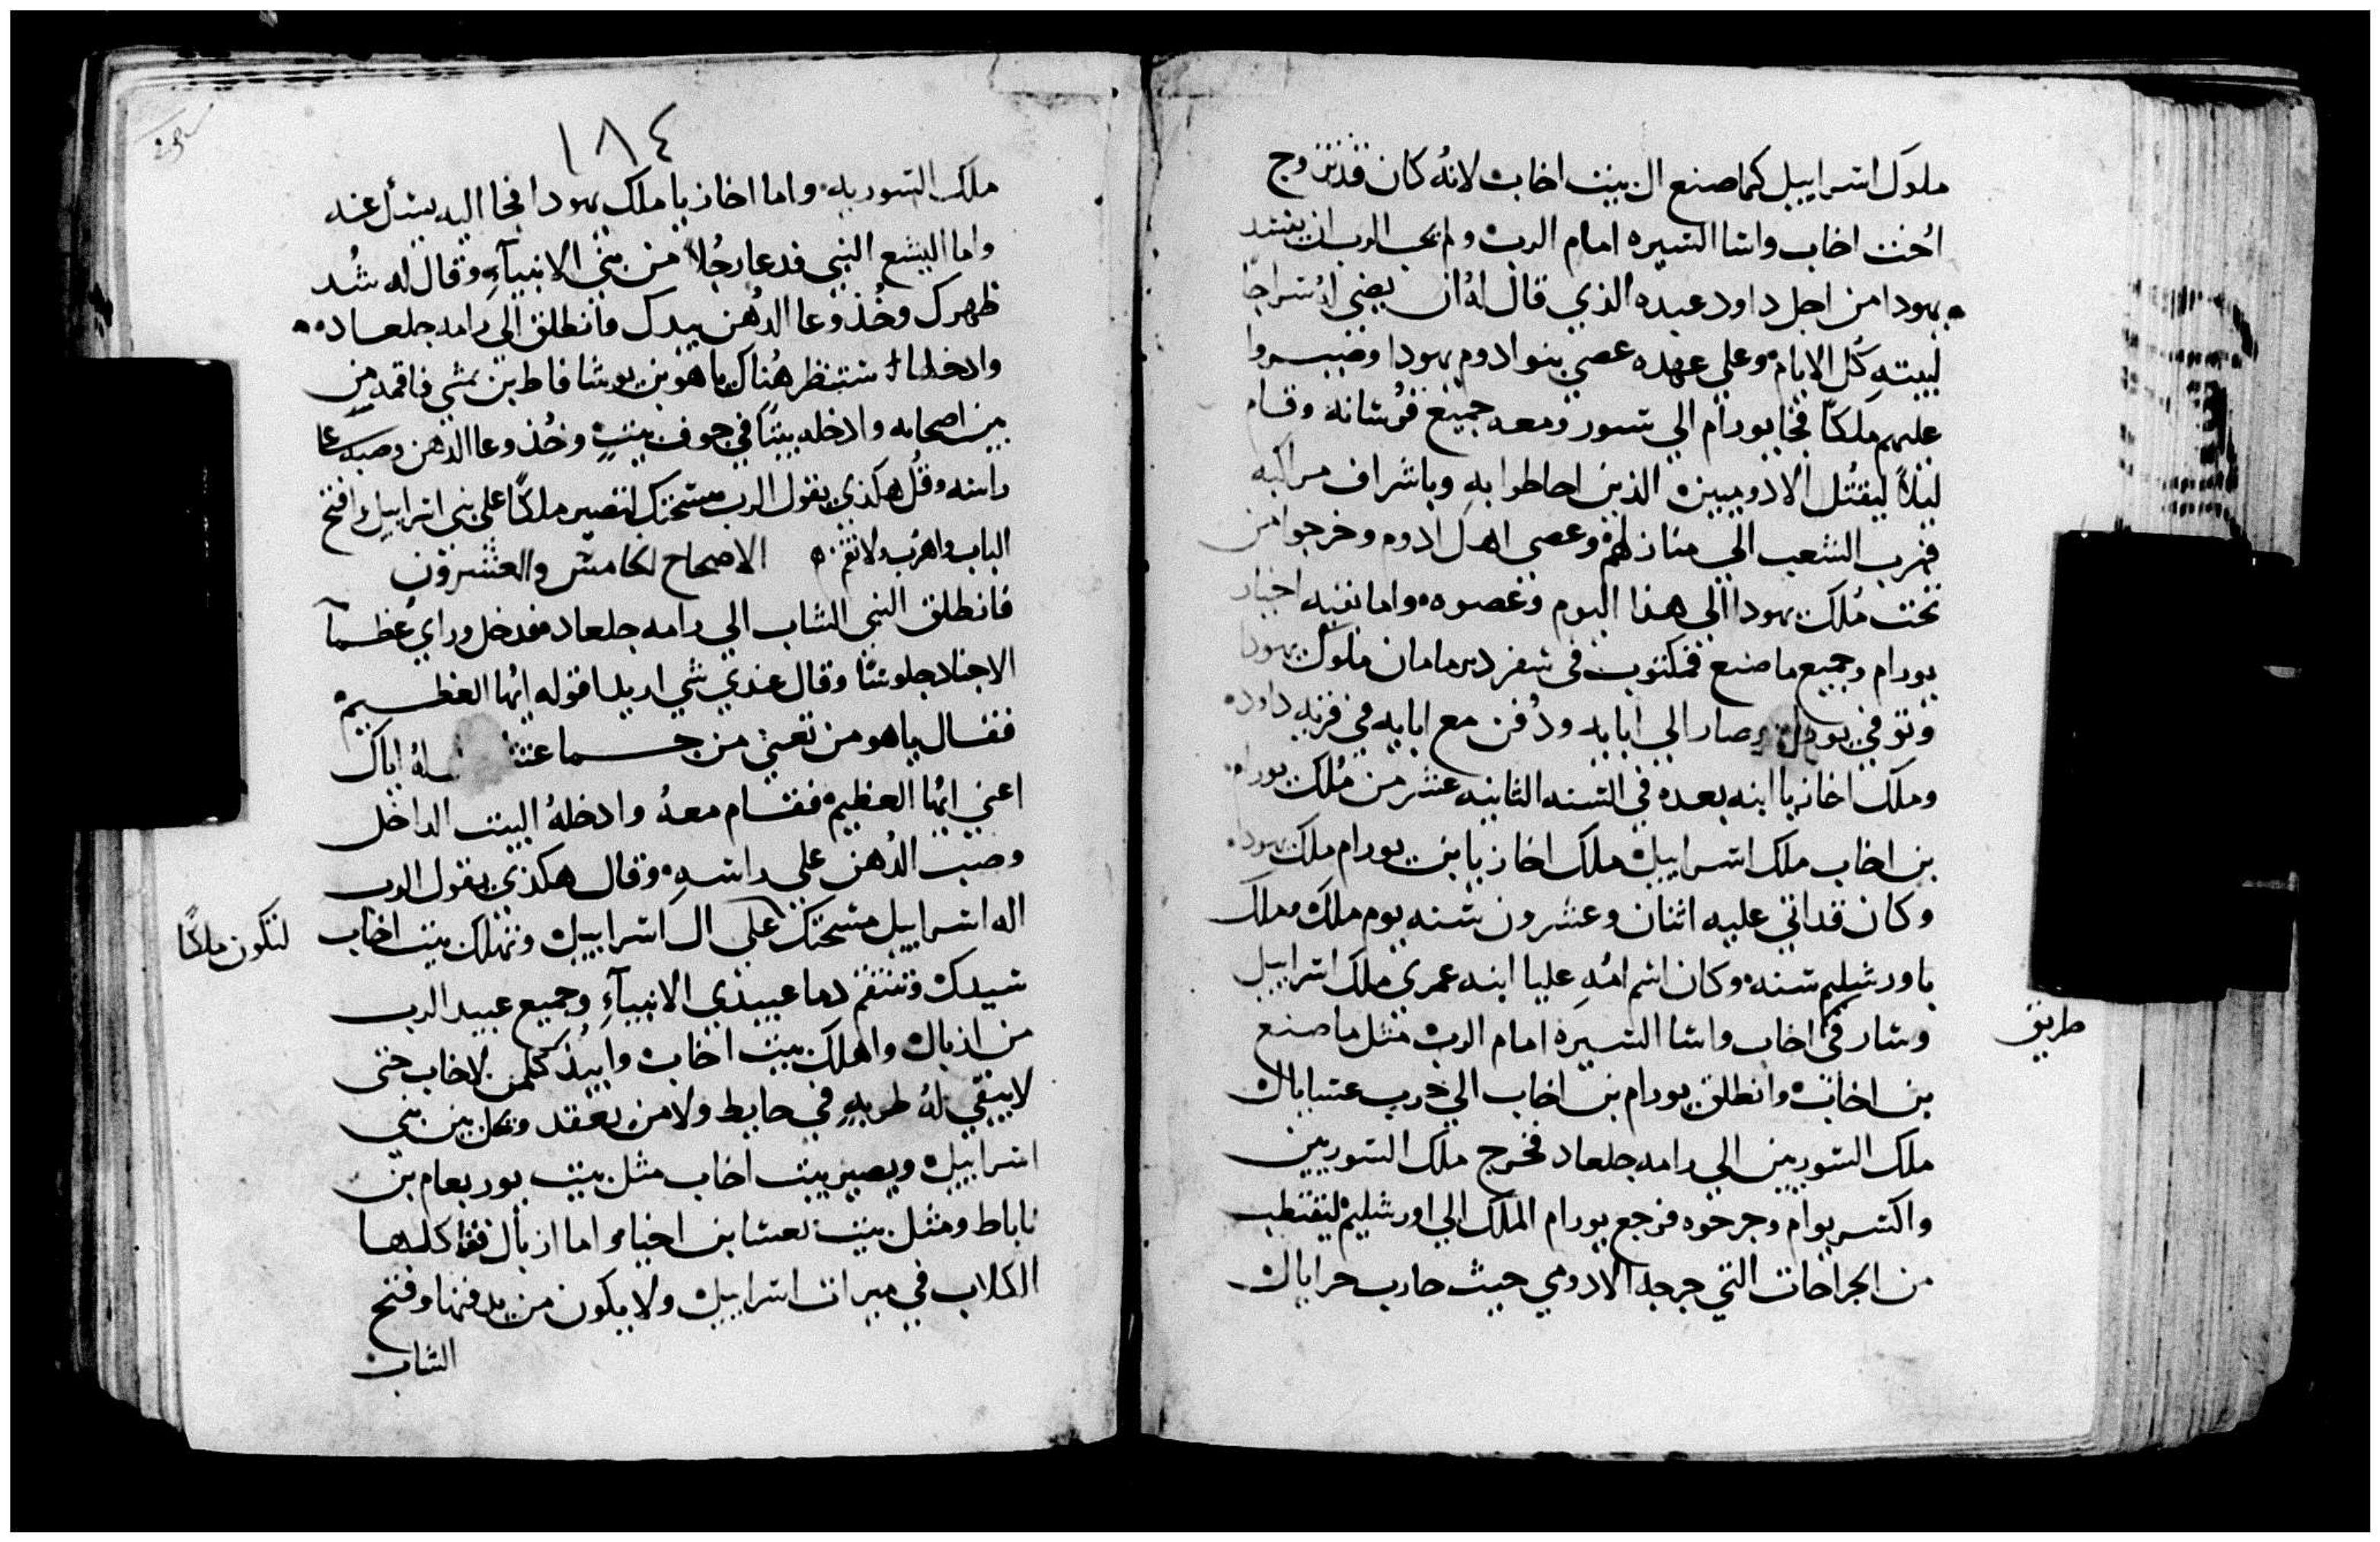 ملوك اسراييل كما صنع ال بيت اخاب لانه كان قد تزوج
اخت اخاب واسا السيره امام الرب ولم يحب الرب ان يفسد
يهودا من اجل داود عبده الذي قال له ان يضي له سراجا
لبيته كل الايام وعلي عهده عصي بنو ادوم يهودا وصيروا
عليهم ملكا فجا يورام الي سور ومعه جميع فرسانه وقام
ليلا ليقتل الادوميين الذين احاطوا به وباشراف مراكبه
فهرب الشعب الي منازلهم وعصي اهل ادوم وخرجوا من
تحت ملك يهودا الي هذا اليوم وعصوه واما بقيه اخبار
يورام وجميع ما صنع فمكتوب في سفر دبريامان ملوك يهودا
وتوفي يورام وصار الي ابايه ودفن مع ابايه في قريه داود
وملك اخازيا ابنه بعده في السنه الثانيه عشر من ملك يورام
بن اخاب ملك اسراييل ملك اخازيا بن يورام ملك يهودا
وكان قد اتي عليه اثنان وعشرون سنه يوم ملك وملك
باورشليم سنه وكان اسم امه عليا ابنه عمري ملك اسراييل
وسار في اخاب واسا السيره امام الرب مثل ما صنع
طريق
بن اخاب وانطلق يورام بن اخاب الي حرب
ملك السوريين الي رامه جلعاد فخرج ملك السوريين
واكسر يورام وجرحوه فرجع يورام الملك الي اورشليم ليتطبب
من الجراحات التي جرحه الادومي حيث حارب حزايال
١٨٤
ملك السوريه واما اخازيا ملك يهودا فجا اليه يسأل عنه
واما اليشع النبي فدعا رجلا من بني الانبيآء وقال له شد
ظهرك وخذ وعا الدهن بيدك وانطلق الي رامه جلعاد
وادخلها ستنظر هناك ياهو بن يوشافاط بن نمشي فاقمه من
بين اصحابه وادخله بيتا في جوف بيت وخذ وعا الدهن وصبه علي
راسه وقل هكذي يقول الرب مسحتك لتصير ملكا علي بني اسراييل وافتح
الباب واهرب ولا تقم الاصحاح الخامس والعشرون
فانطلق النبي الشاب الي رامه جلعاد فدخل وراي عظمآ
الاجناد جلوسا وقال عندي شي اريد اقوله ايها العظيم
فقال ياهو من تعني من جماعتنا له اياك
اعني ايها العظيم فقام معه وادخله البيت الداخل
وصب الدهن علي راسه وقال هكذي يقول الرب
اله اسراييل مسحتك علي ال اسراييل وتهلك بيت اخاب
لتكون ملكا
سيدك وتنتقم دما عبيدي الانبيآء وجميع عبيد الرب
من ازبال واهلك بيت اخاب وابيد كلمن لاخاب حتى
لا يبقي له في حايط ولا من يعقد ويحل بين بني
اسراييل ويصير بيت اخاب مثل بيت يوربعام بن
ناباط ومثل بيت بعشا بن اخيا واما ازبال فتاكلها
الكلاب في ميراث اسراييل ولا يكون من يدفنها وفتح
الشاب